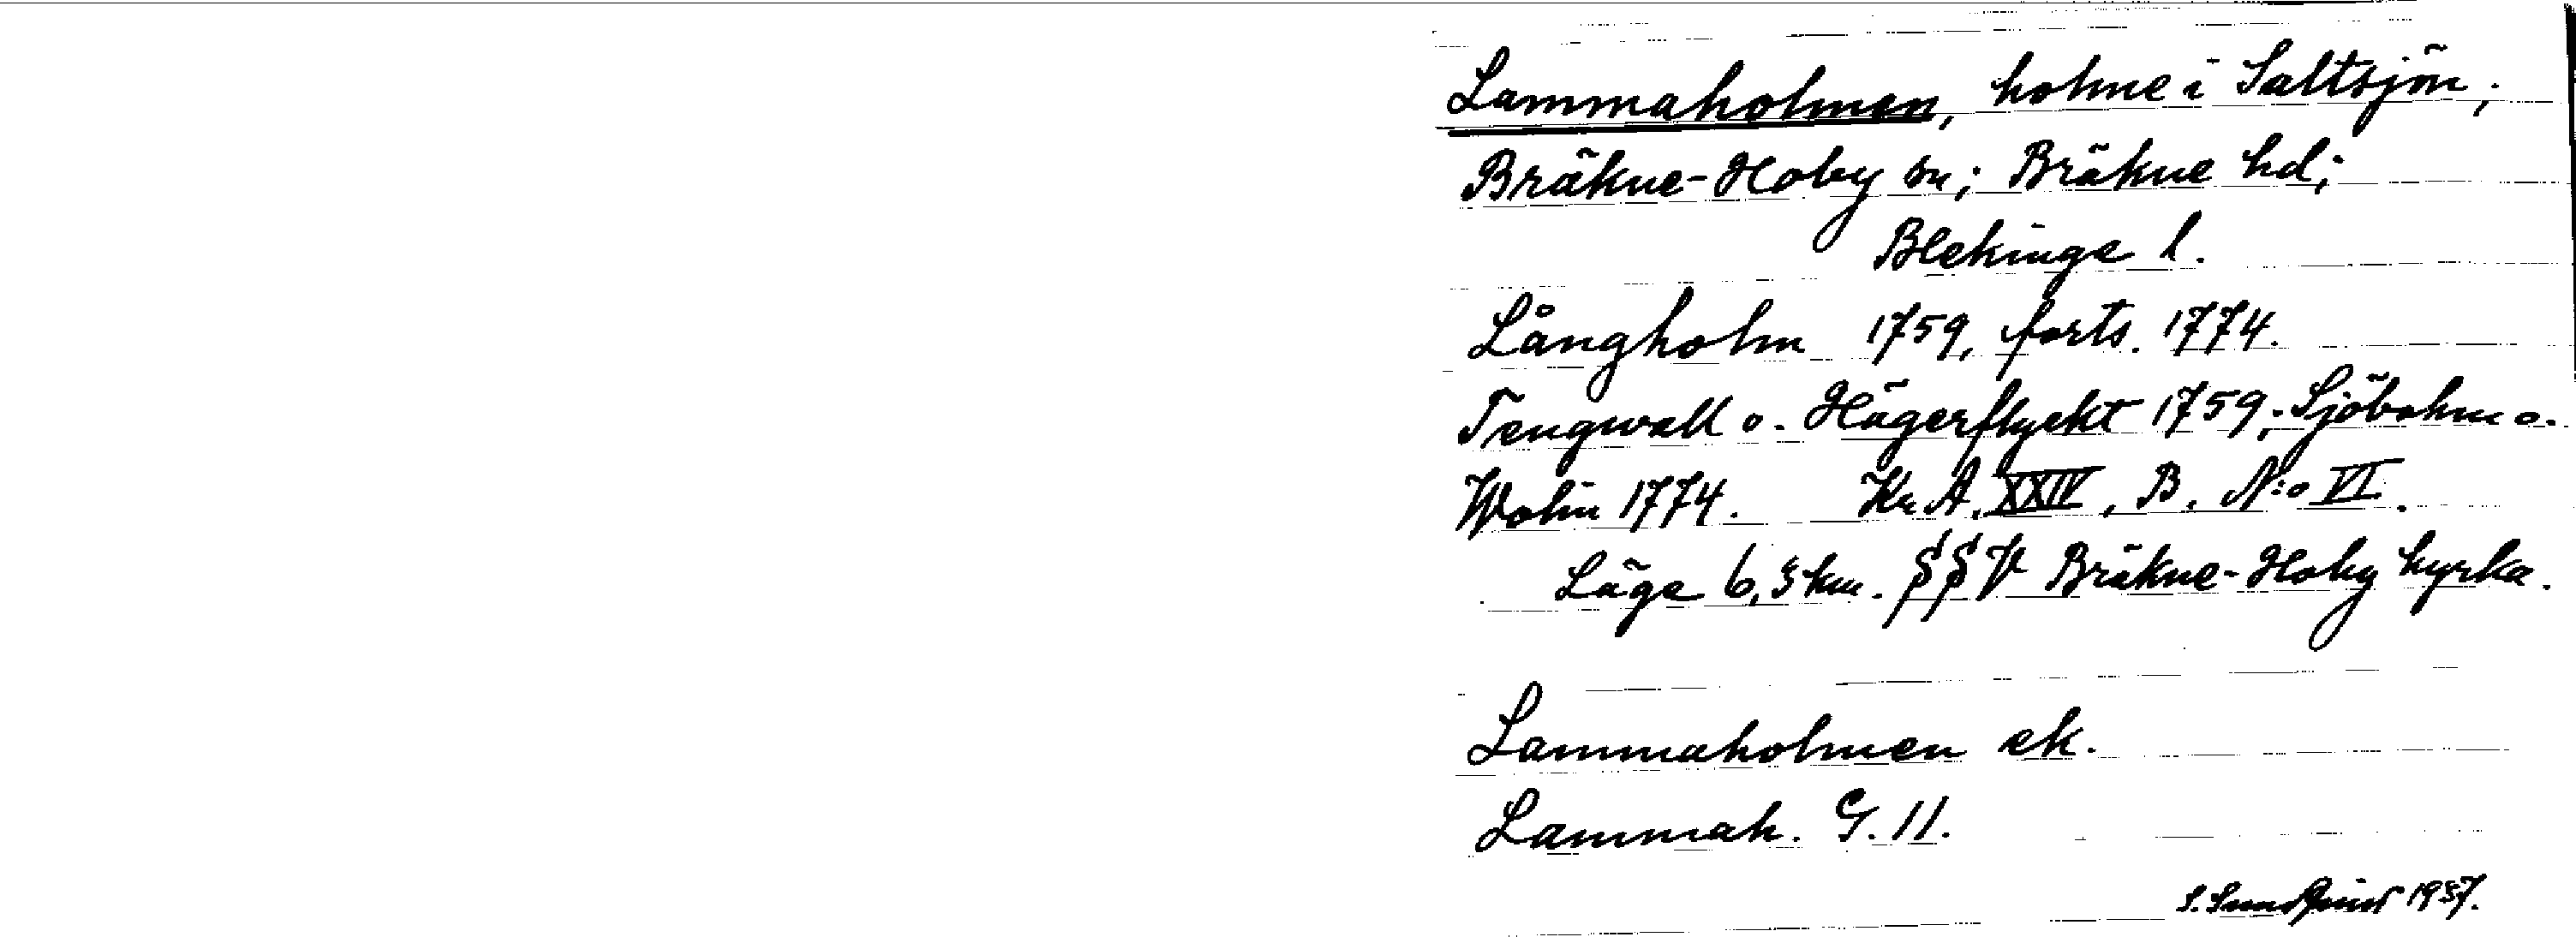 Lammaholmen, holme i Saltsjön;
Bräkne-Hoby sn; Bräkne hd;
Blekinge l.
Långholm 1759, forts. 1774.
Tengwall o. Hägerflyckt 1759; Sjöbohm o.
Wolin 1774. Kr. A. XXIV, B. N:o VI.
Läge 6,3 km. SSV Bräkne-Hoby kyrka.
Lammaholmen ek.
Lammah. G. 11.
S. Sundquist 1937.